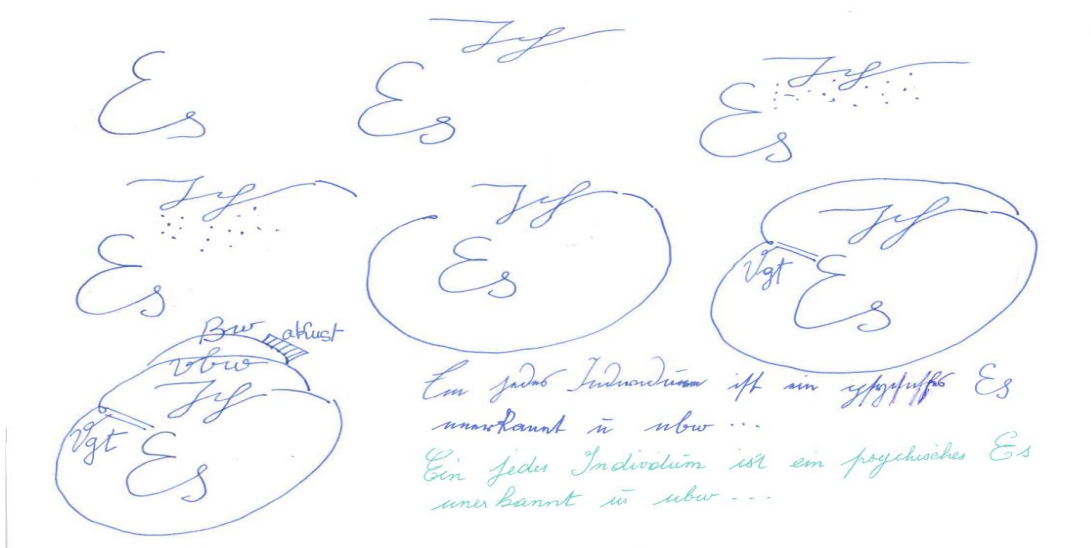 Es
Ich
Es
Ich
Es
Ich
Es
Ich
Es
Ich
Vgt
Es
Bw akust
Vbw
Ich
Vgt
Es
Ein jedes Individuum ist ein psychisches Es
unerkannt ū ubw ...
Ein jedes Individūm ist ein psychisches Es
unerkannt ū ubw ...